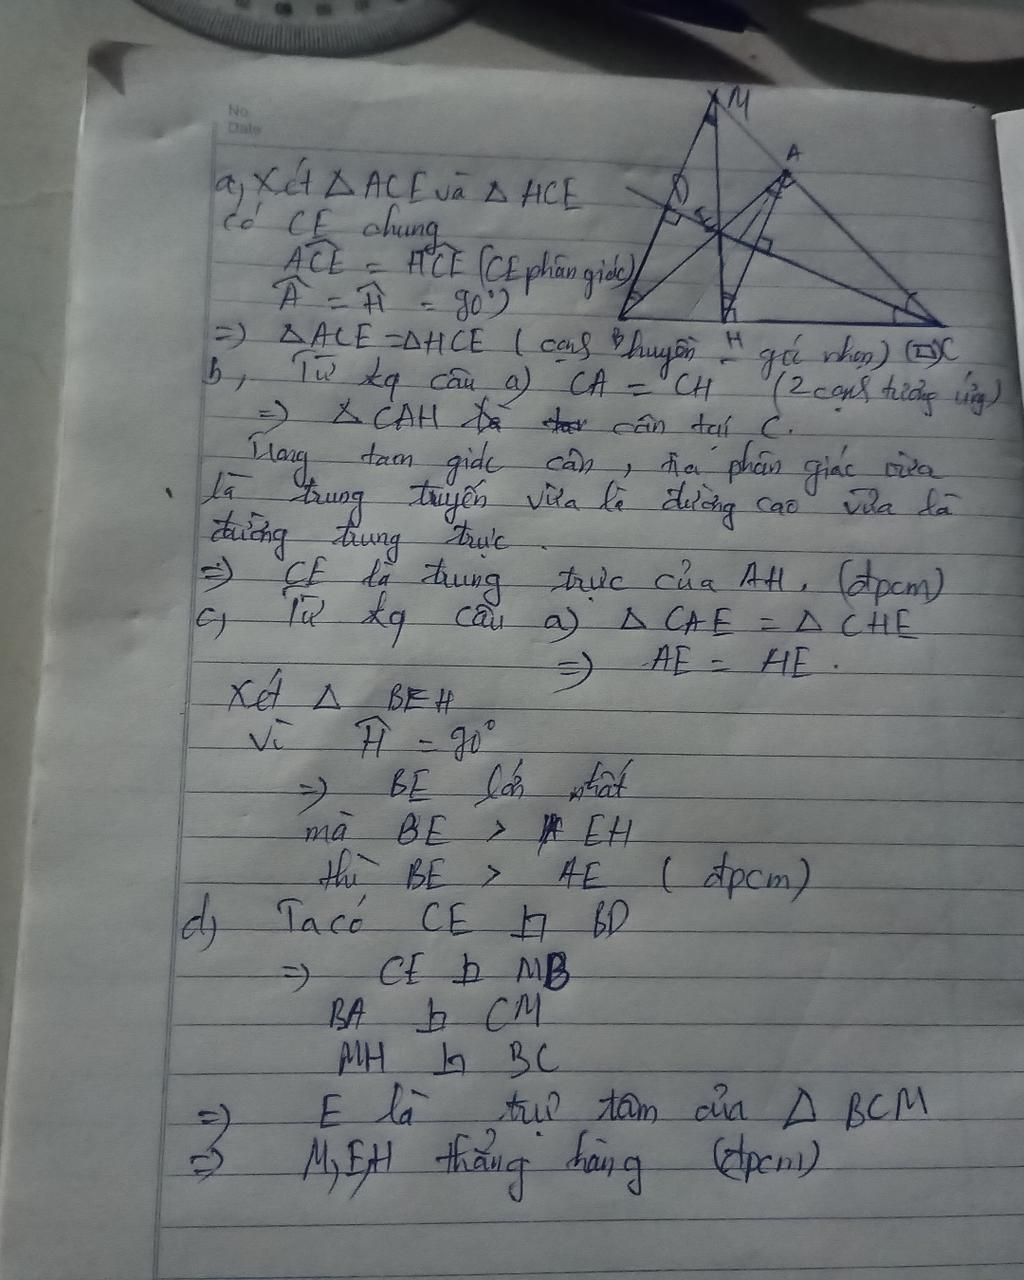 No.
Date
M
A
D
E
B
H
C
a, Xét Δ ACE và Δ HCE
có CE chung
ACE = HCE (CE phân giác)
A = H = 90°)
=> ΔACE = ΔHCE (cạnh huyền – góc nhọn)
b, Từ kq câu a) CA = CH (2 cạnh tương ứng)
=> Δ CAH cân tại C.
Trong tam giác cân, tia phân giác vừa
là trung truyến vừa là đường cao vừa là
đường trung trực.
=> CE là trung trực của AH. (đpcm)
c, Từ kq câu a) Δ CAE = Δ CHE
=> AE = HE.
Xét Δ BEH
vì H = 90°
=> BE lớn nhất
mà BE > EH
thì BE > AE (đpcm)
d, Ta có CE ⊥ BD
=> CE ⊥ MB
BA ⊥ CM
MH ⊥ BC
=> E là trực tâm của Δ BCM
=> M,E,H thẳng hàng (đpcm)